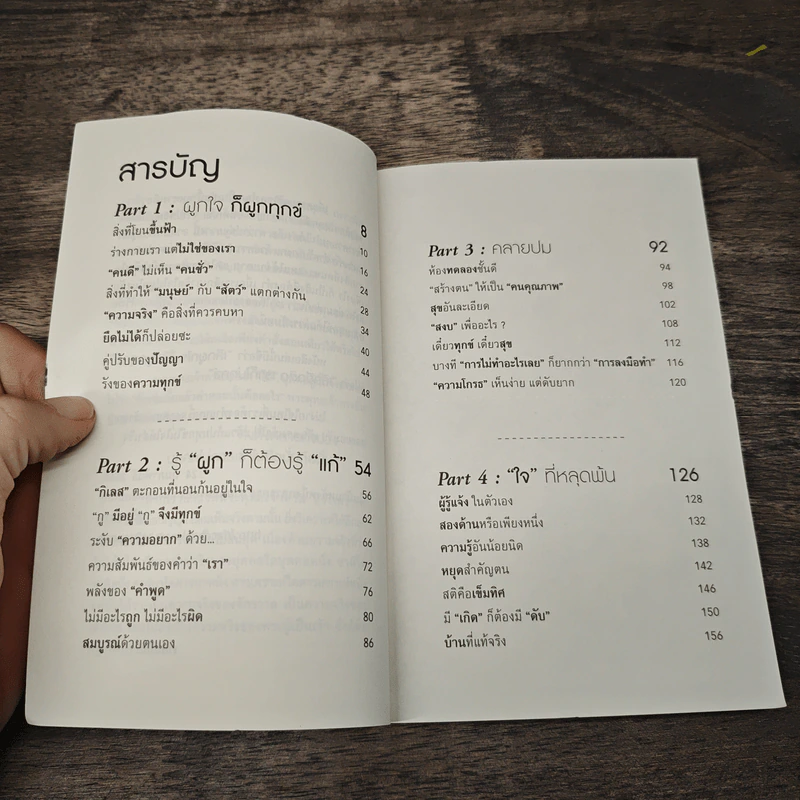 สารบัญ
Part 1 : ผูกใจ ก็ผูกทุกข์ 8
สิ่งที่โยนขึ้นฟ้า 10
ร่างกายเรา แต่ไม่ใช่ของเรา 16
“คนดี” ไม่เห็น “คนชั่ว” 24
สิ่งที่ทำให้ “มนุษย์” กับ “สัตว์” แตกต่างกัน 28
“ความจริง” คือสิ่งที่ควรคบหา 34
ยึดไม่ได้ก็ปล่อยซะ 40
คู่ปรับของปัญญา 44
รังของความทุกข์ 48
Part 2 : รู้ “ผูก” ก็ต้องรู้ “แก้” 54
“กิเลส” ตะกอนที่นอนก้นอยู่ในใจ 56
“กู” มีอยู่ “กู” จึงมีทุกข์ 62
ระงับ “ความอยาก” ด้วย... 66
ความสัมพันธ์ของคำว่า “เรา” 72
พลังของ “คำพูด” 76
ไม่มีอะไรถูก ไม่มีอะไรผิด 80
สมบูรณ์ด้วยตนเอง 86
Part 3 : คลายปม 92
ห้องทดลองชั้นดี 94
“สร้างตน” ให้เป็น “คนคุณภาพ” 98
สุขอันละเอียด 102
“สงบ” เพื่ออะไร ? 108
เดี๋ยวทุกข์ เดี๋ยวสุข 112
บางที “การไม่ทำอะไรเลย” ก็ยากกว่า “การลงมือทำ” 116
“ความโกรธ” เห็นง่าย แต่ดับยาก 120
Part 4 : “ใจ” ที่หลุดพ้น 126
ผู้รู้แจ้ง ในตัวเอง 128
สองด้านหรือเพียงหนึ่ง 132
ความรู้อันน้อยนิด 138
หยุดสำคัญตน 142
สติคือเข็มทิศ 146
มี “เกิด” ก็ต้องมี “ดับ” 150
บ้านที่แท้จริง 156